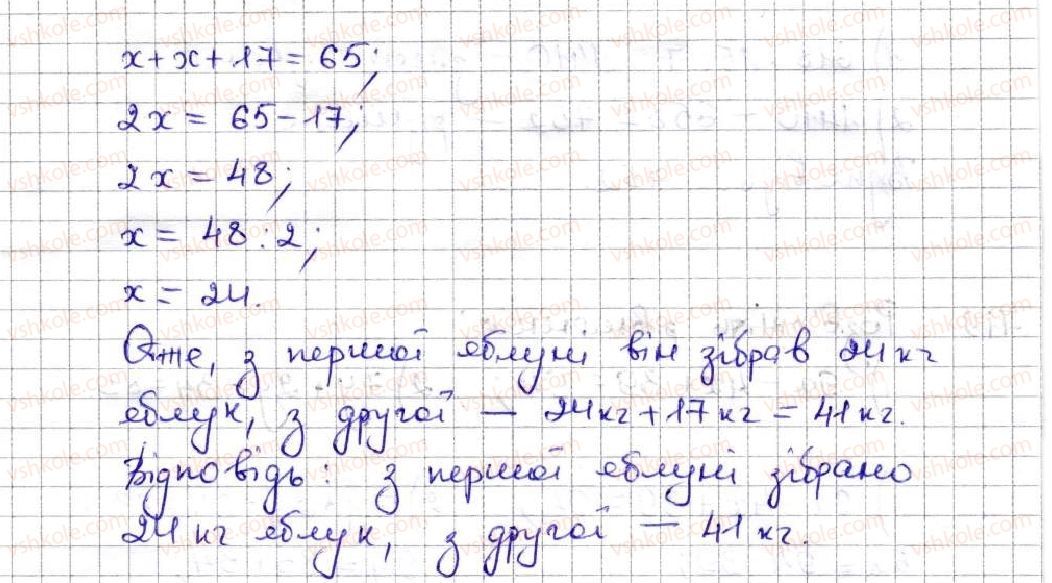 x + x + 17 = 65;
2x = 65 - 17;
2x = 48;
x = 48 : 2;
x = 24.
Отже, з першої яблуні він зібрав 24 кг
яблук, з другої — 24 кг + 17 кг = 41 кг.
Відповідь: з першої яблуні зібрано
24 кг яблук, з другої — 41 кг.